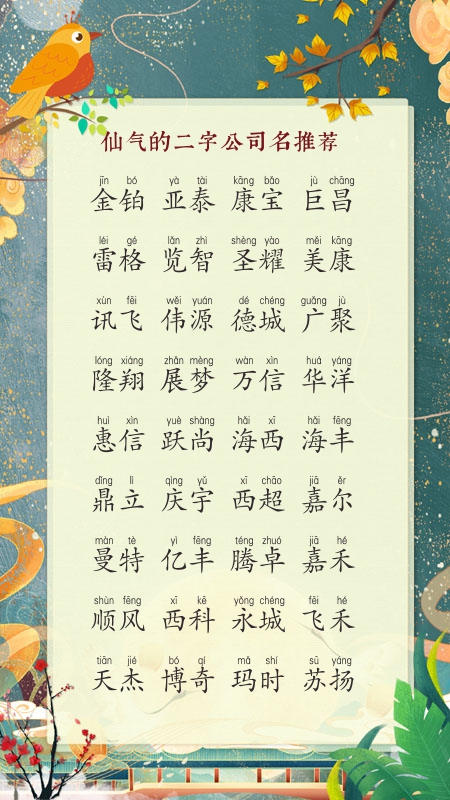 仙气的二字公司名推荐
jīn bó yà tài kāng bǎo jù chāng
金铂 亚泰 康宝 巨昌
léi gé lǎn zhì shèng yào měi kāng
雷格 览智 圣耀 美康
xùn fēi wěi yuán dé chéng guǎng jù
讯飞 伟源 德城 广聚
lóng xiáng zhǎn mèng wàn xìn huá yáng
隆翔 展梦 万信 华洋
huì xìn yuè shàng hǎi xī hǎi fēng
惠信 跃尚 海西 海丰
dǐng lì qìng yǔ xī chāo jiā ěr
鼎立 庆宇 西超 嘉尔
màn tè yì fēng téng zhuó jiā hé
曼特 亿丰 腾卓 嘉禾
shùn fēng xī kē yǒng chéng fēi hé
顺风 西科 永城 飞禾
tiān jié bó qí mǎ shí sū yáng
天杰 博奇 玛时 苏扬